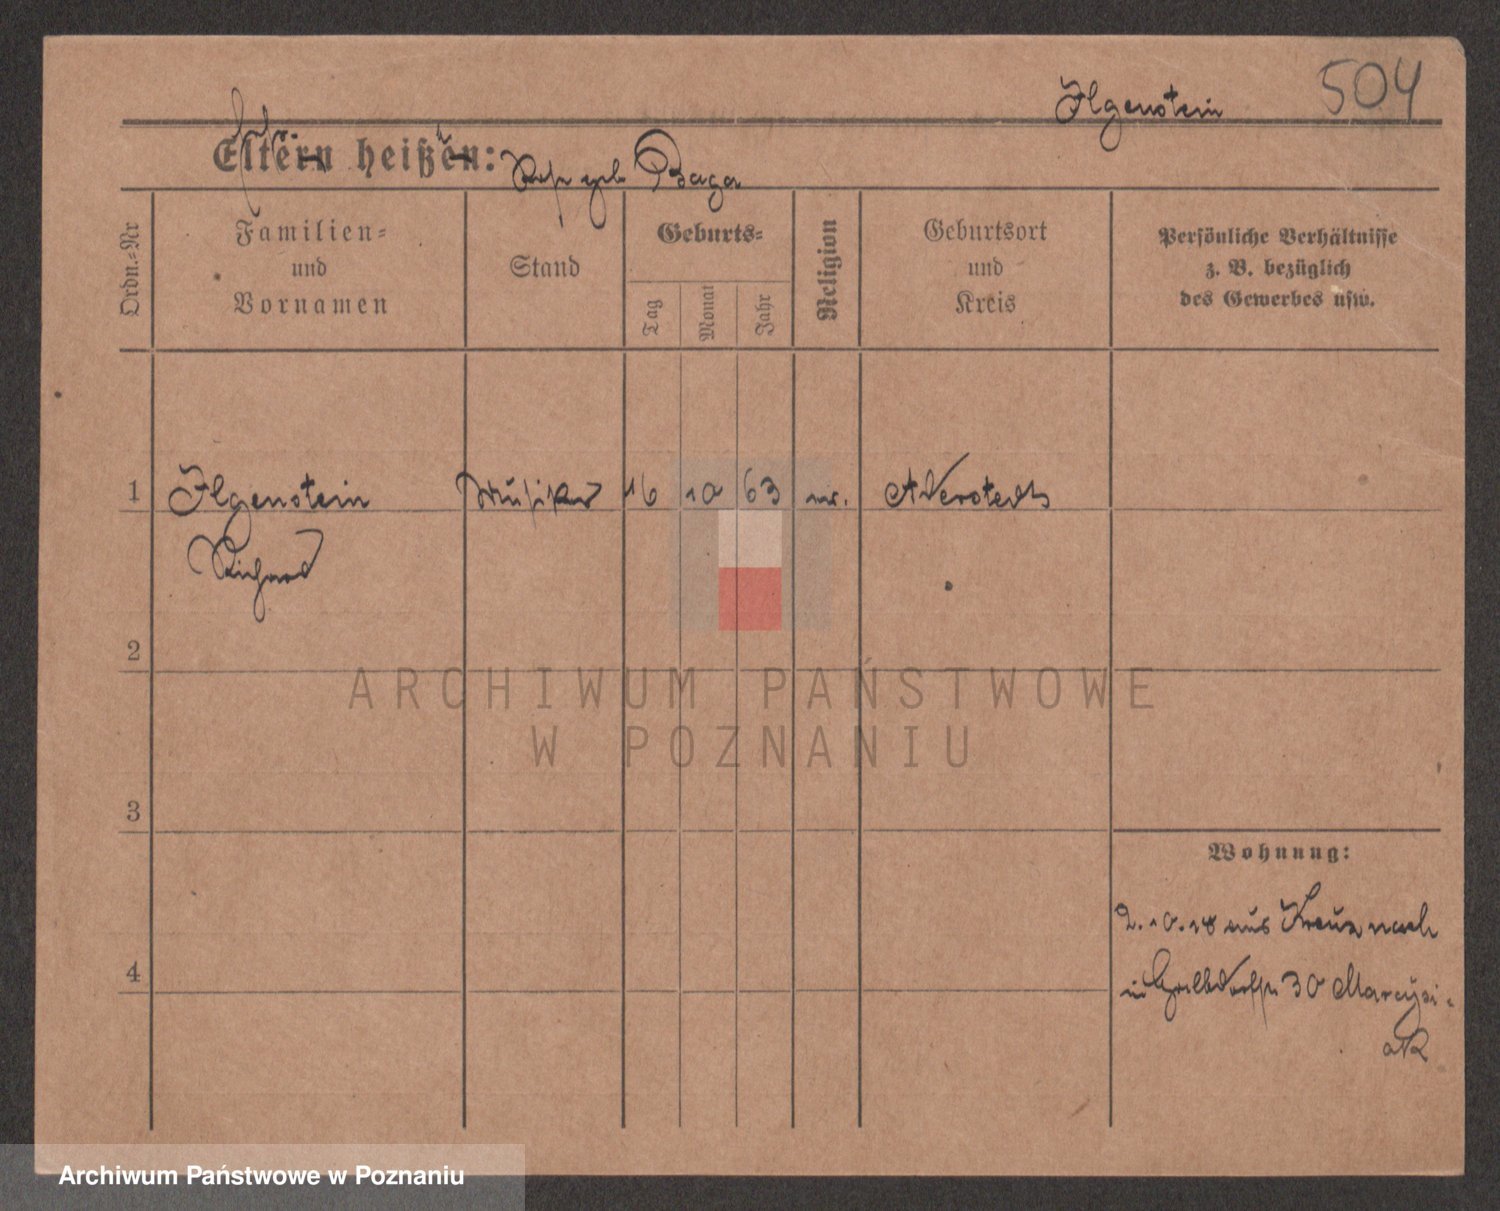 Ilgenstein 504
Eltern heißen: geb Baga
Ordn.=Nr
Familien=
und
Vornamen
Stand
Geburts=
Tag
Monat
Jahr
Religion
Geburtsort
und
Kreis
Persönliche Verhältnisse
z. B. bezüglich
des Gewerbes usw.
1 Ilgenstein Musiker 16 10 63
Richard
2
ARCHIWUM PAŃSTWOWE
W POZNANIU
3
Wohnung:
2.10.18 aus Kreuz nach
30
4
Archiwum Państwowe w Poznaniu